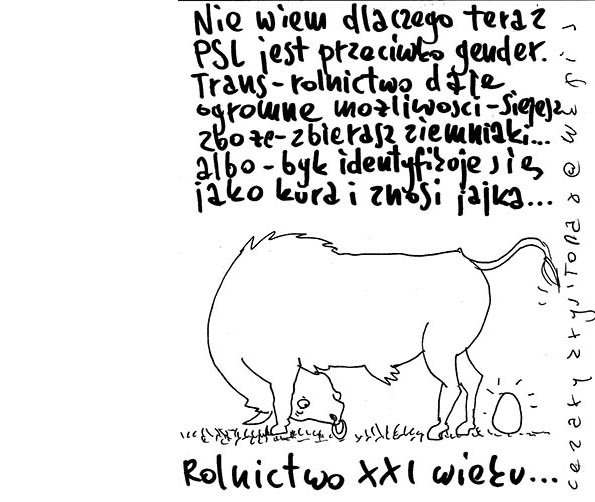 Nie wiem dlaczego teraz
PSL jest przeciwko gender.
Trans-rolnictwo daje
ogromne możliwości-siejesz
zboże-zbierasz ziemniaki...
albo-byk identyfikuje się
jako kura i znosi jajka...
Rolnictwo XXI wieku...
cezary